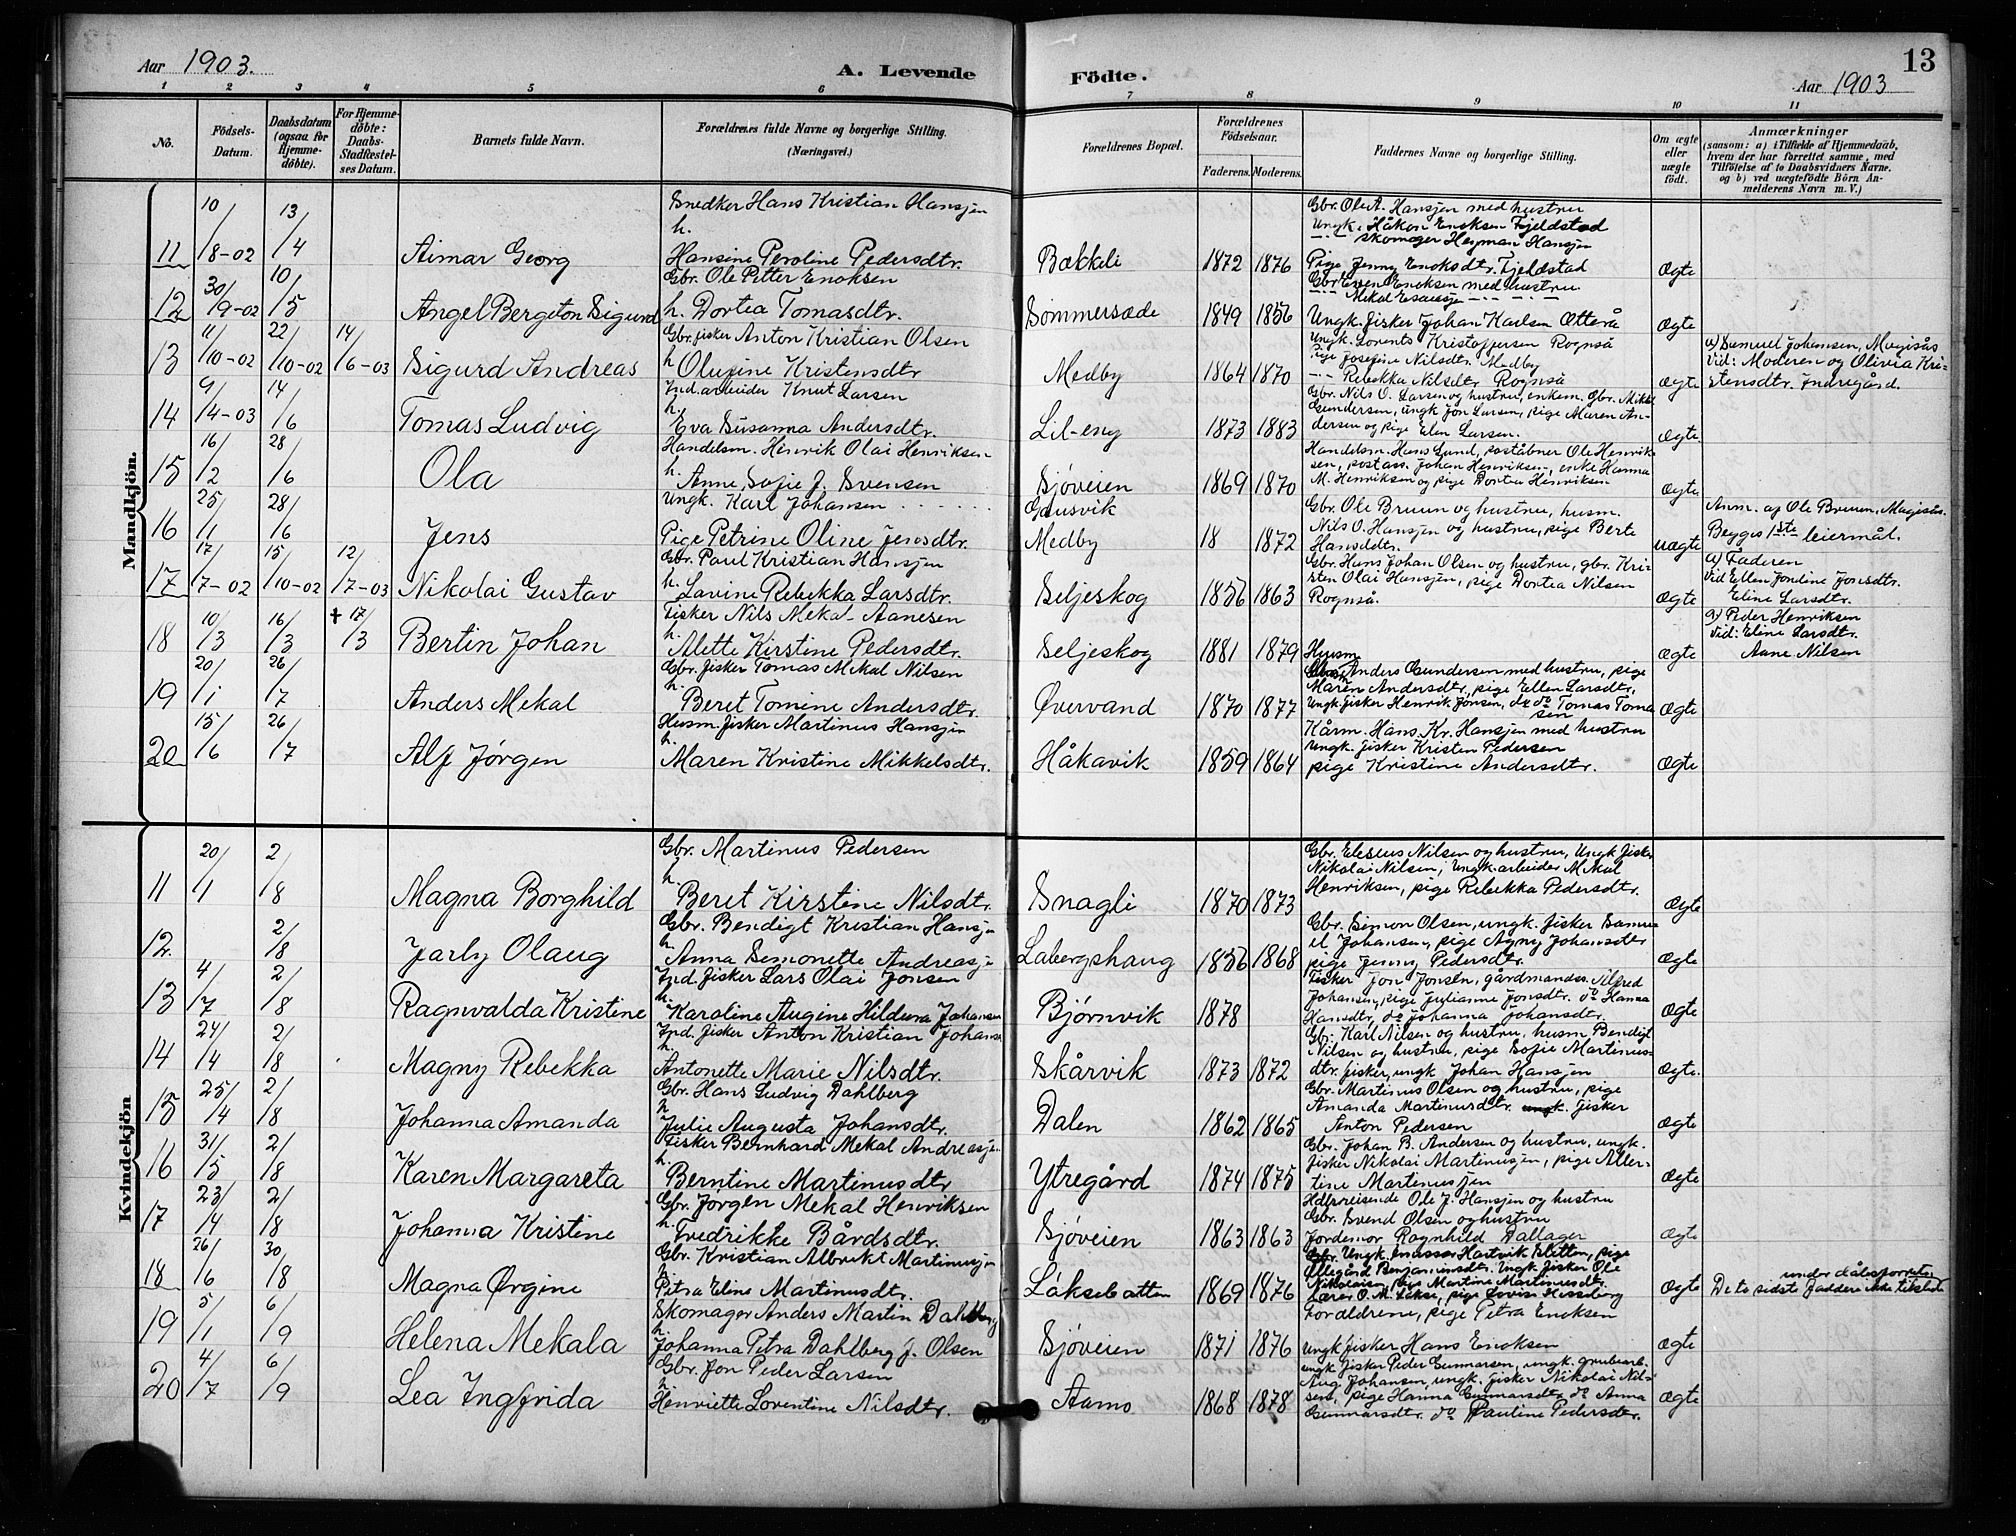 Aar 1903.
A. Levende Födte.
13
Aar 1903
1 2 3 4 5 6 7 8 9 10 11
No.
Födsels-Datum.
Daabsdatum (ogsaa for Hjemmedöbte).
For Hjemmedöbte: Daabs-Stadfæstelses Datum.
Barnets fulde Navn.
Forældrenes fulde Navne og borgerlige Stilling.
(Næringsvei.)
Forældrenes Bopæl.
Forældrenes Födselsaar.
Faderens. Moderens.
Faddernes Navne og borgerlige Stilling.
Om ægte eller uægte födt.
Anmærkninger
(saasom: a) i Tilfælde af Hjemmedaab, hvem der har forrettet samme, med Tilföielse af to Daabsvidners Navne, og b) ved uægtefödte Börn Anmelderens Navn m. V.)
Mandkjön.
Snedker Hans Kristian Hansen
h.
11 10/8-02 13/4 Aimar Georg Hansine Peroline Pedersdtr. Bakkeli 1872 1876 Ægte
Gbr. Ole A. Hansen med hustru
Ungk. Håkon Enoksen Fjeldstad
Skomager Heyman Hansen
Pige Jenny Enoksdtr. Fjeldstad
Gbr. Ole Petter Enoksen
12 30/9-02 10/5 Angel Bergiton Sigurd h. Dortea Tomasdtr. Sommersæde 1849 1856 Ægte
Ungk. fisker Johan Karlsen Otterå
Gbr. fisker Anton Kristian Olsen
13 11/10-02 22/10-02 14/6-03 Sigurd Andreas h. Olufine Kristensdtr Medby 1864 1870 Ægte
Ungk. Lorents Kristoffersen Rognså
Pige Josefine Nilsdtr. Medby
Rebekka Nilsdtr Rognså
a) Samuel Johansen, Movisås
Vid: Moderen og Olivia Kristensdtr. Indregård.
Ind. arbeider Knut Larsen
h.
14 9/4-03 14/6 Tomas Ludvig Eva Susanna Andersdtr. Lil-eng 1873 1883 Ægte
Gbr. Nils O. Larsen og hustru, enkem. Gbr. Mikal
Gundersen, ungk Jon Larsen, pige Maren Andersen og pige Elen Larsen.
Handelsm. Henrik Olai Henriksen
15 16/2 28/6 Ola h. Anne Sofie J. Svensen Sjøveien 1869 1870 Ægte
Handelsm. Hans Lund, poståbner Ole Henriksen, postass. Johan Henriksen, enke Hanna
M. Henriksen og pige Dortea Henriksen
Ungk. Karl Johansen Gausvik
16 25/1 28/6 Jens Pige Petrine Oline Jensdtr. Medby 18 1872 uægte
Gbr. Ole Bruun og hustru, husm.
Nils O. Hansen og hustru, pige Berte
Hansdtr.
Anm. af Ole Bruun, Movisås.
Begges 1ste leiermål.
Gbr. Paul Kristian Hansen
17 17/7-02 15/10-02 12/7-03 Nikolai Gustav h. Lavine Rebekka Larsdtr. Seljeskog 1856 1863 Ægte
Gbr. Hans Johan Olsen og hustru, gbr. Kristen Olai Hansen, pige Dortea Nilsen
Rognså.
a) Faderen
Vid Ellen Jondine Jonsdtr.
Eline Larsdtr.
Fisker Nils Mekal Aanesen
18 10/3 16/3 † 17/3 Bertin Johan h. Alette Kirstine Pedersdtr. Seljeskog 1881 1879 Ægte
a) Peder Henriksen
Vid: Eline Larsdtr.
Aane Nilsen
Gbr. fisker Tomas Mekal Nilsen
19 20/1 26/7 Anders Mekal h. Beret Tomine Andersdtr. Øvervand 1870 1877 Ægte
Husm
Anders Gundersen med hustru, pige
Maren Andersdtr, pige Ellen Larsdtr,
Ungk. fisker Henrik Jonsen, do do Tomas Tomassen
Husm. fisker Martinus Hansen
h.
20 15/6 26/7 Alf Jørgen Maren Kristine Mikkelsdtr. Håkavik 1859 1864 Ægte
Kårm. Hans Kr. Hansen med hustru
Ungk. fisker Kristen Pedersen
pige Kristine Andersdtr.
Kvindekjön
Gbr. Martinus Pedersen
h
11 20/1 2/8 Magna Borghild Beret Kirstine Nilsdtr. Snagli 1870 1873 Ægte
Gbr. Eleseus Nilsen og hustru, Ungk fisker
Nikolai Nilsen, Ungk. arbeider Mekal
Henriksen, pige Rebekka Pedersdtr.
Gbr. Bendigt Kristian Hansen
12. 2/8 Jarly Olaug h. Anna Semonette Andreas Labergshaug 1856 1868 Ægte
Gbr. Simon Olsen, ungk. fisker Samuel Johansen, pige Agny Johansdtr
pige Jenny Pedersdtr.
Ind. fisker Lars Olai Jonsen
13 4/7 2/8 Ragnvalda Kristine h. Karoline Augine Hildura Johansen Bjørnvik 1878 Ægte
Fisker Jon Jonsen, gårdmandss. Alfred
Johansen, pige Julianne Jonsdtr. do Hanna
Hansdtr, do Johanna Johansdtr.
Ind. fisker Anton Kristian Johans
h.
14 24/4 2/8 Magny Rebekka Antonette Marie Nilsdtr. Skårvik 1873 1872 Ægte.
Gbr. Karl Nilsen og hustru, husm Bendigt
Nilsen og hustru, pige Sofie Martinusdtr. fisker, ungk Johan Hansen
Gbr. Hans Ludvig Dahlberg
h
15 25/4 2/8 Johanna Amanda Julie Augusta Johansdtr. Dalen 1862 1865 Ægte
Gbr. Martinus Olsen og hustru, pige
Amanda Martinusdtr. ungk. fisker
Anton Pedersen
Fisker Bernhard Mekal Andreasen
h.
16 31/5 2/8 Karen Margareta Berntine Martinusdtr Ytregård 1874 1875 Ægte
Gbr. Johan B. Andersen og hustru, ungk.
fisker Nikolai Martinusen, pige Albertine Martinusen
Gbr. Jørgen Mekal Henriksen
17 23/4 2/8 Johanna Kristine h. Fredrikke Bårdsdtr. Sjøveien 1863 1863 Ægte
Hdlsreisende Ole J. Hansen og hustru
Gbr. Svend Olsen og hustru
Jordemor Ragnhild Dallager
Gbr. Kristian Albrikt Martinusen
h
18 26/6 30/8 Magna Ørgine Petra Eline Martinusdtr. Låksebotten 1869 1876 Ægte
Ungk. Hartvik Slitten, pige
Ollegård Benjaminsdtr. Ungk fisker Ole
Nikolaisen, pige Martine Martinusdtr.
under dåbsforretn
De to sidste faddere ikke tilstede
Skomager Anders Martin Dahlberg
h
19 5/1 6/9 Helena Mekala Johanna Petra Dahlberg f. Olsen Sjøveien 1871 1876 Ægte
Forældrene, pige Petra Enoksen
ungk fisker Hans Enoksen
Gbr. Jon Peder Larsen
h
20 4/7 6/9 Lea Ingfrida Henriette Lorentine Nilsdtr. Aamo 1868 1878 Ægte
ungk. fisker Peder Gunnarsen, ungk. grubearb.
Aug Johansen, ungk. fisker Nikolai Nilsen, pige Hanna Gunnarsdtr. do Anna
Gunnarsdtr. do Pauline Pedersdtr.